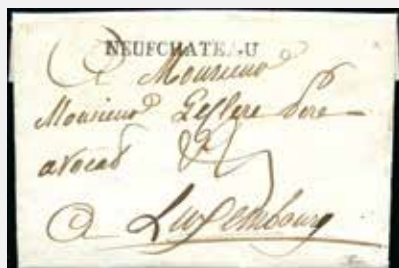 NEUFCHATEAU
A Monsieur
Monsieur père
avocat
A Luxembourg